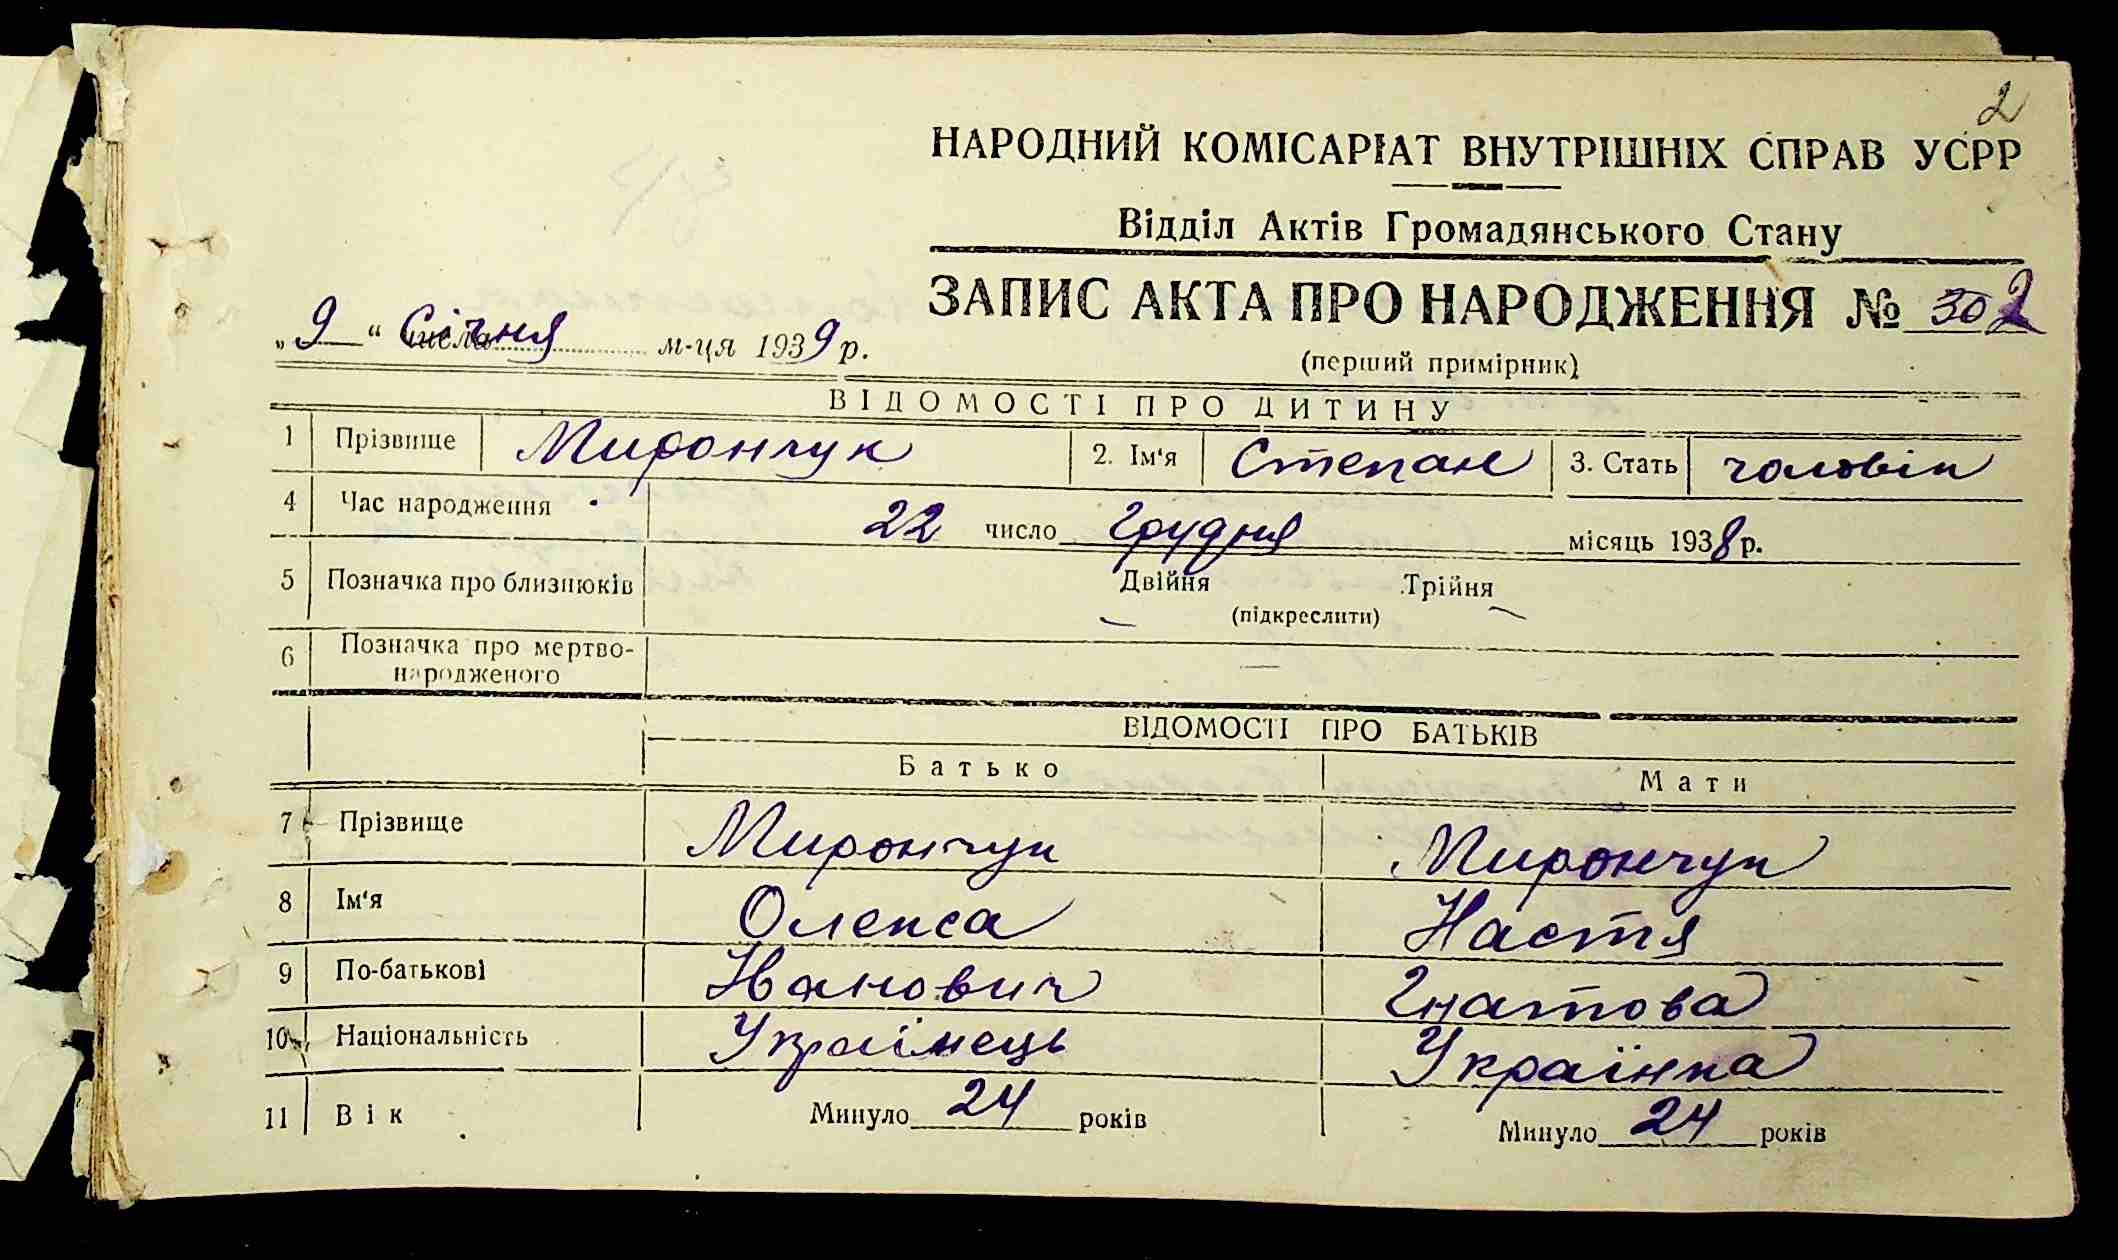 2
НАРОДНИЙ КОМІСАРІАТ ВНУТРІШНІХ СПРАВ УСРР
Відділ Актів Громадянського Стану
ЗАПИС АКТА ПРО НАРОДЖЕННЯ № 2
„9“ Січня м-ця 1939 р.
(перший примірник)
ВІДОМОСТІ ПРО ДИТИНУ
1 Прізвище Мирончук 2. Ім'я Степан 3. Стать чоловік
4 Час народження 22 число Грудня місяць 1938 р.
5 Позначка про близнюків Двійня Трійня
(підкреслити)
6 Позначка про мертво-
народженого —
ВІДОМОСТІ ПРО БАТЬКІВ
Батько Мати
7 Прізвище Мирончук Мирончук
8 Ім'я Олекса Настя
9 По-батькові Іванович Гнатова
10 Національність Українець Українка
11 Вік Минуло 24 років Минуло 24 років